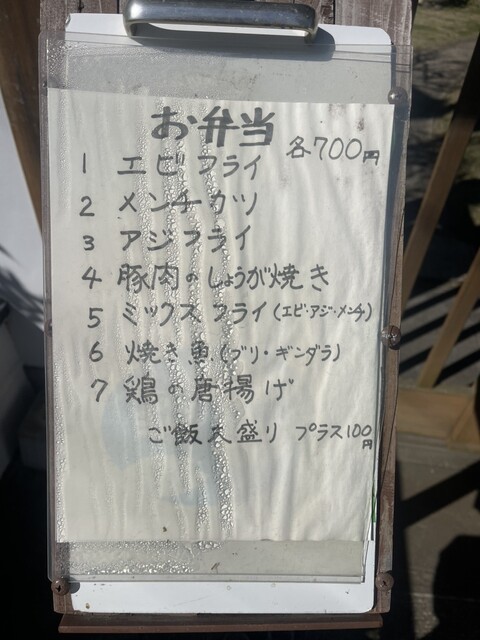 お弁当 各700円
1 エビフライ
2 メンチカツ
3 アジフライ
4 豚肉のしょうが焼き
5 ミックスフライ(エビ・アジ・メンチ)
6 焼き魚(ブリ・ギンダラ)
7 鶏の唐揚げ
ご飯大盛り プラス100円